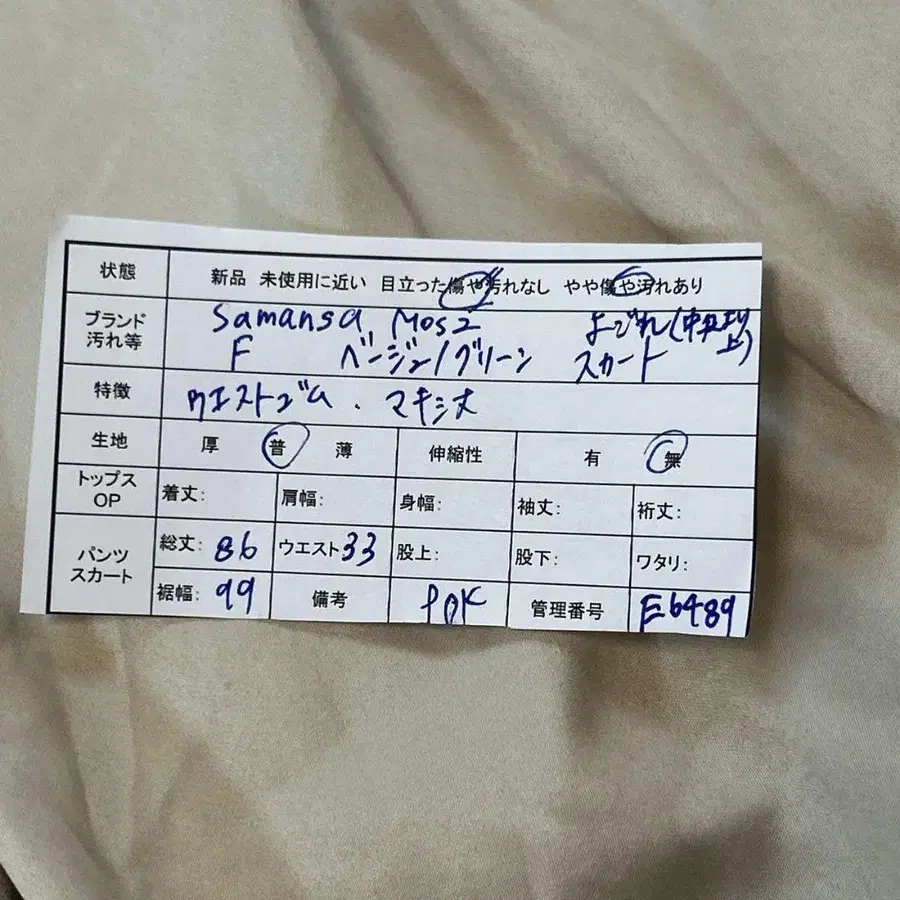 状態 新品 未使用に近い 目立った傷や汚れなし やや傷や汚れあり
ブランド 汚れ等 Samansa Mos2 よごれ(中央より上)
F ベージュ/グリーン スカート
特徴 ウエストゴム . マキシ丈
生地 厚 普 薄 伸縮性 有 無
トップス OP 着丈: 肩幅: 身幅: 袖丈: 裄丈:
パンツ スカート 総丈: 86 ウエスト 33 股上: 股下: ワタリ:
裾幅: 99 備考 POK 管理番号 E6489